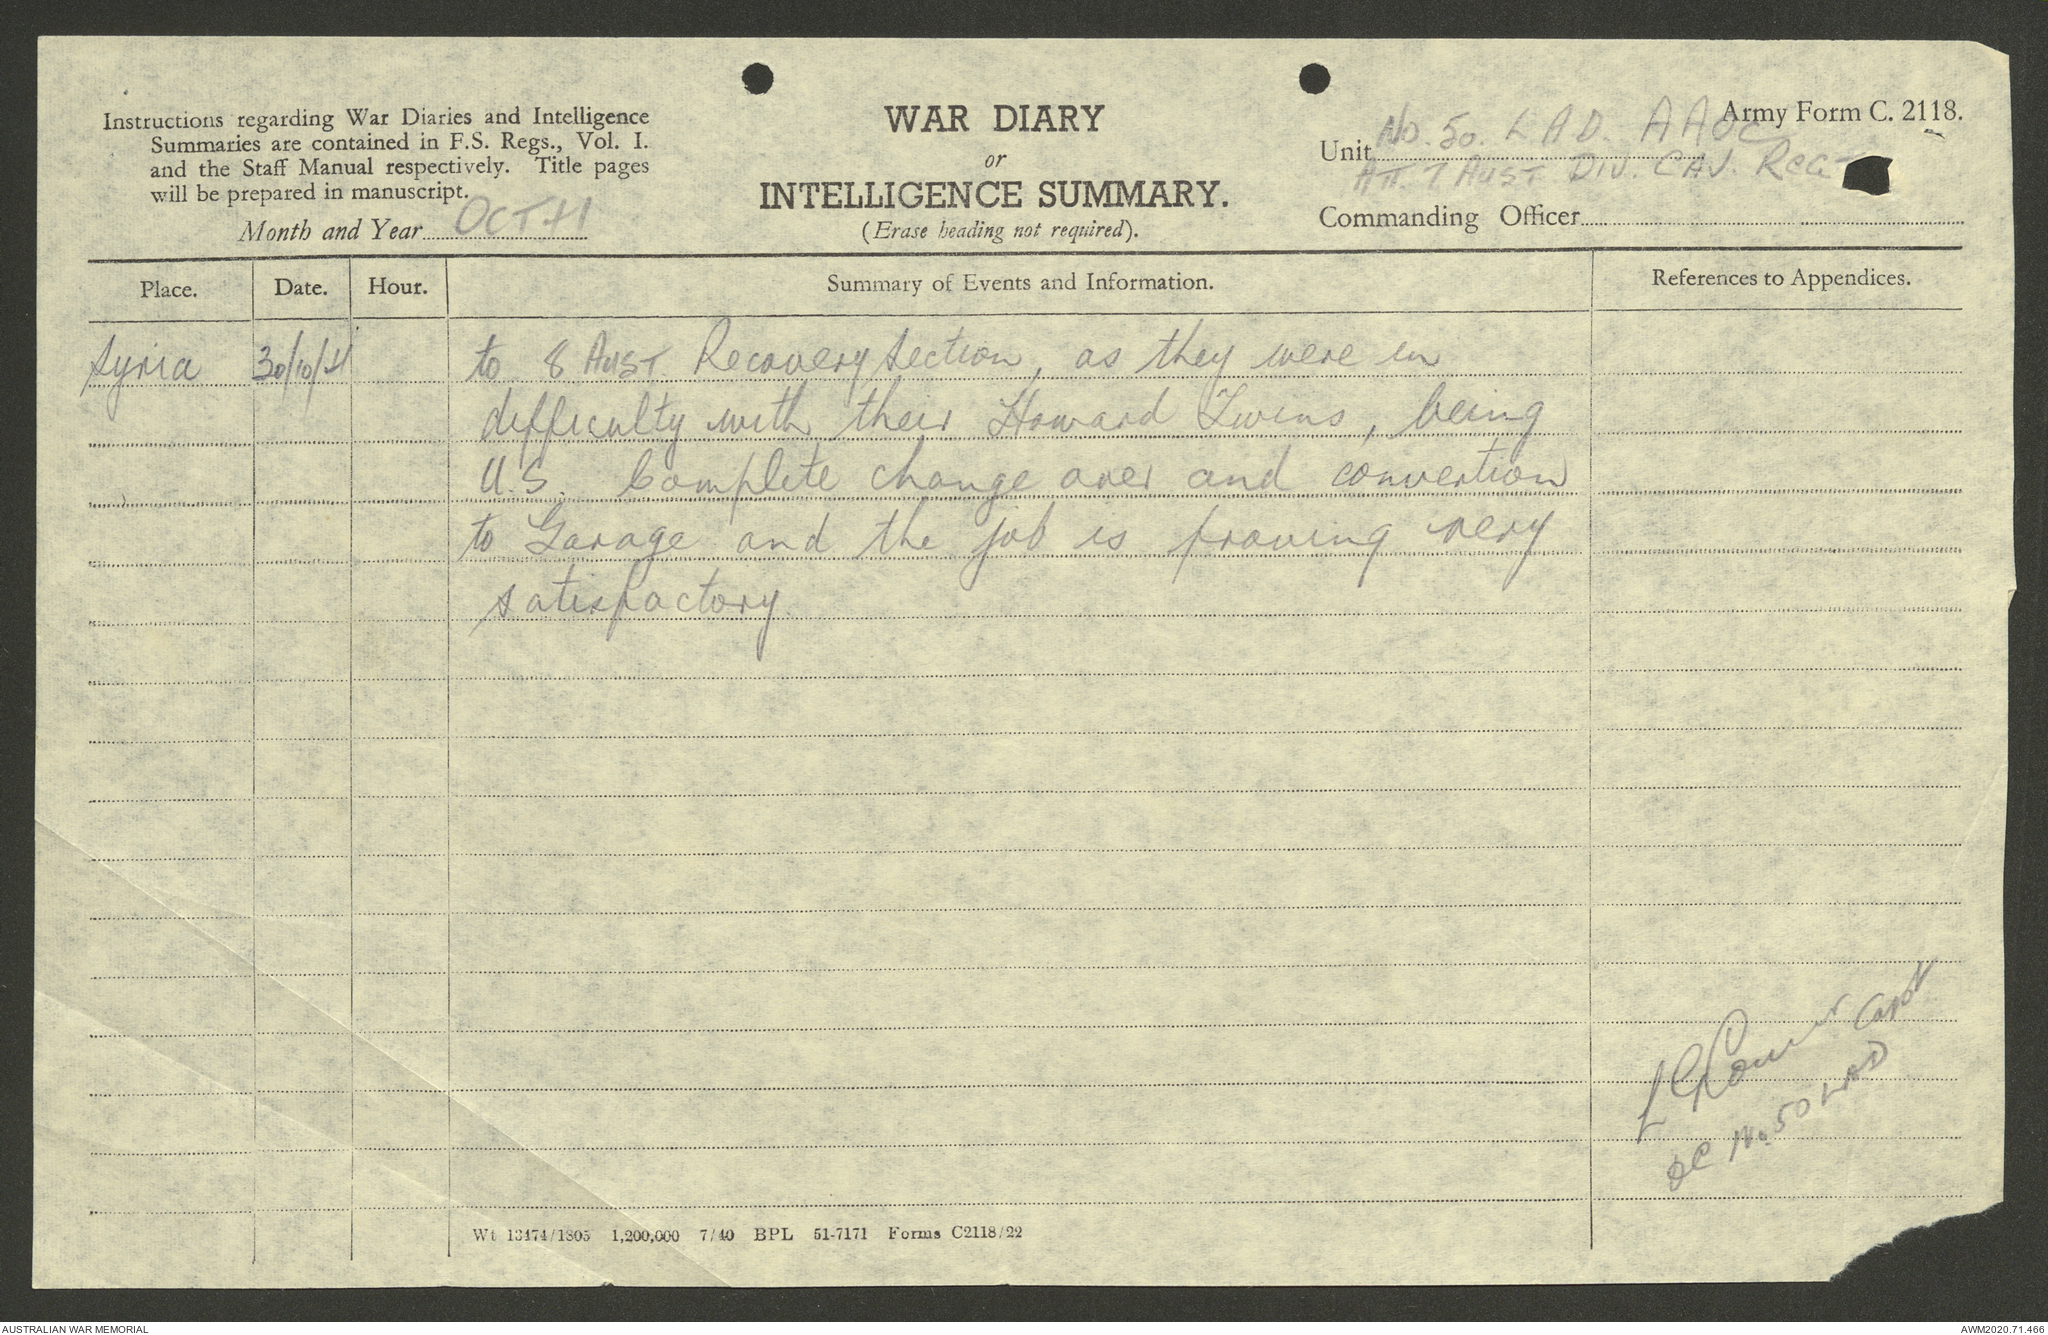 Army Form C. 2118.
Instructions regarding War Diaries and Intelligence
Summaries are contained in F.S. Regs., Vol. I.
and the Staff Manual respectively. Title pages
will be prepared in manuscript.
Month and Year OCT 41
WAR DIARY
or
INTELLIGENCE SUMMARY.
(Erase heading not required).
Unit No. 50. L A D. AAOC
Att. 7 AUST DIV. CAV. REGT
Commanding Officer
Place. Date. Hour. Summary of Events and Information. References to Appendices.
Syria 30/10/41 to 8 AUST. Recovery Section, as they were in
difficulty with their Howard Twins, being
U.S. Complete change over and convertion
to Garage and the job is proving very
satisfactory.
Capt
OC No. 50 LAD
Wt 13474/1805 1,200,000 7/40 BPL 51-7171 Forms C2118/22
AUSTRALIAN WAR MEMORIAL
AWM2020.71.466